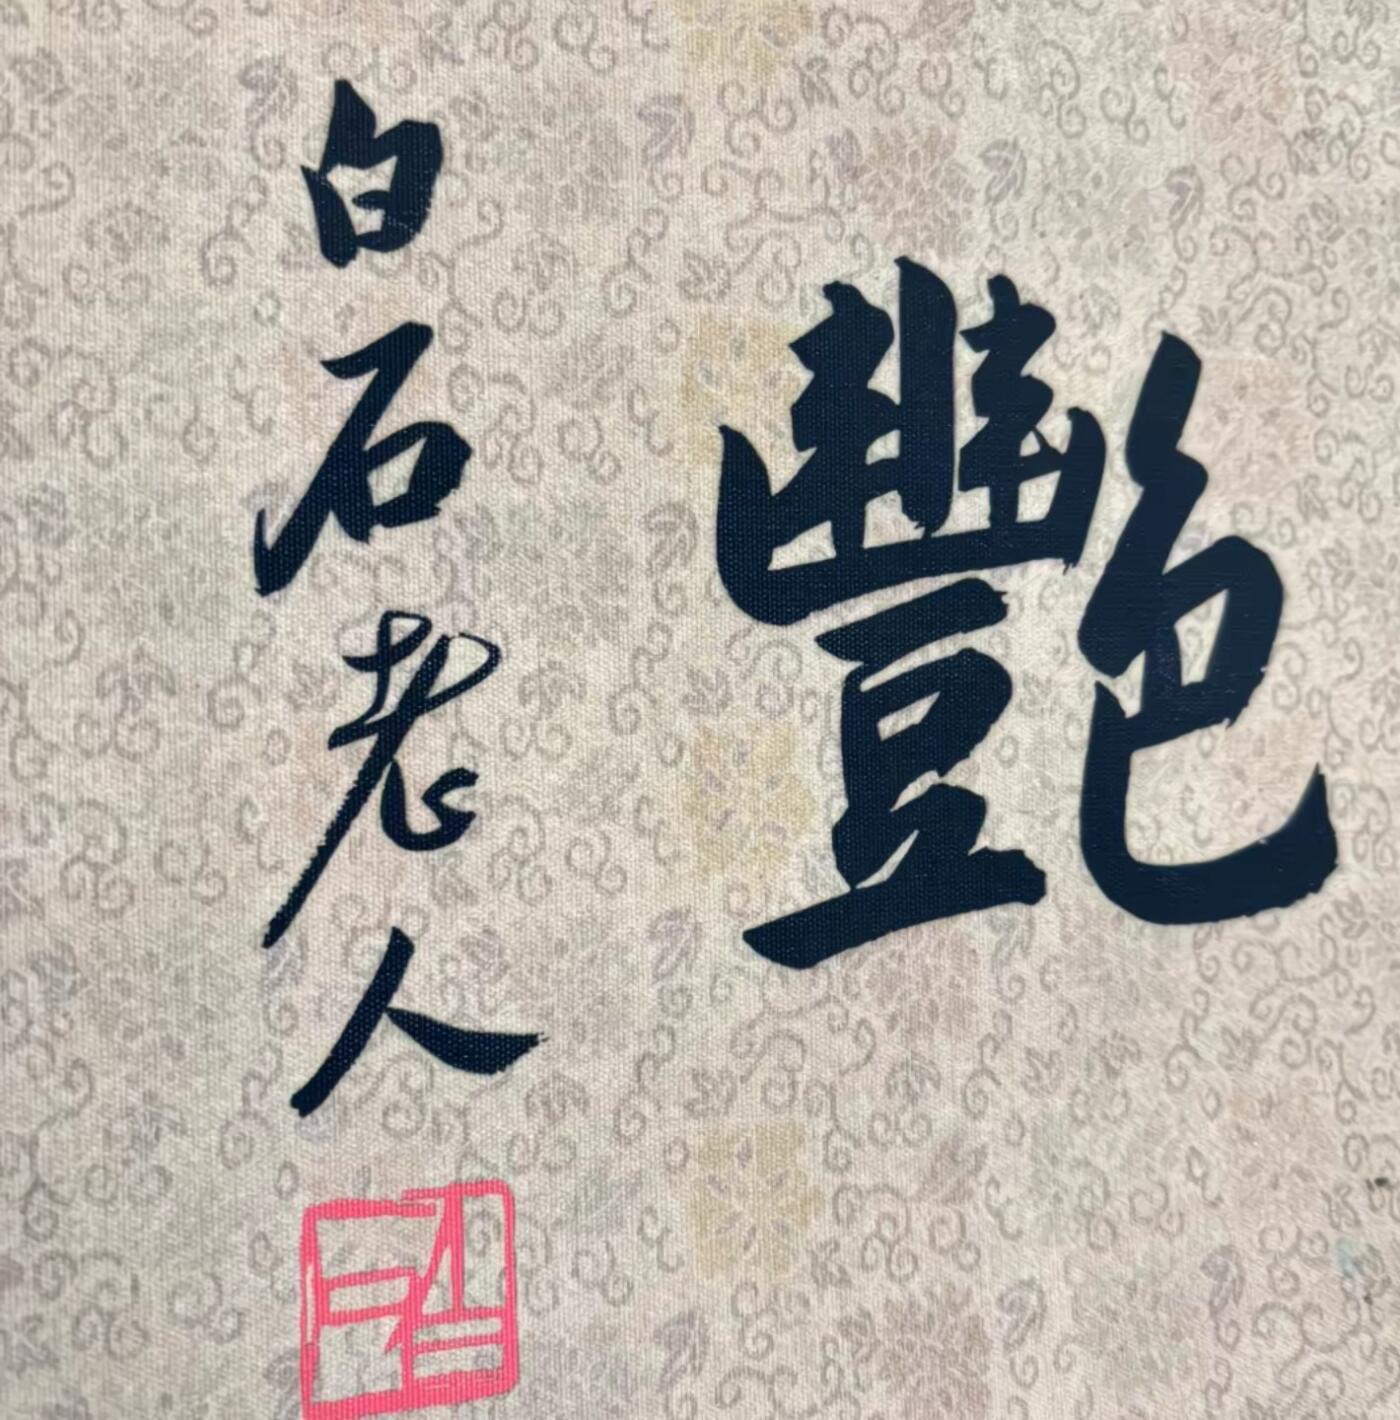 豔
白石老人